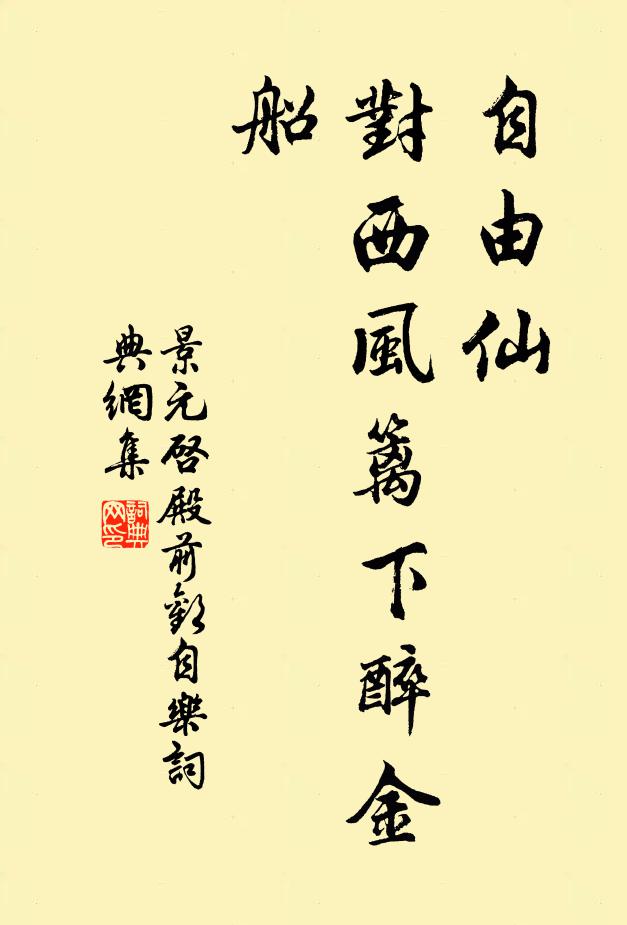 自由仙
對西風籬下醉金
船
景元啓殿前歡自樂詞
典網集
詞典
网印